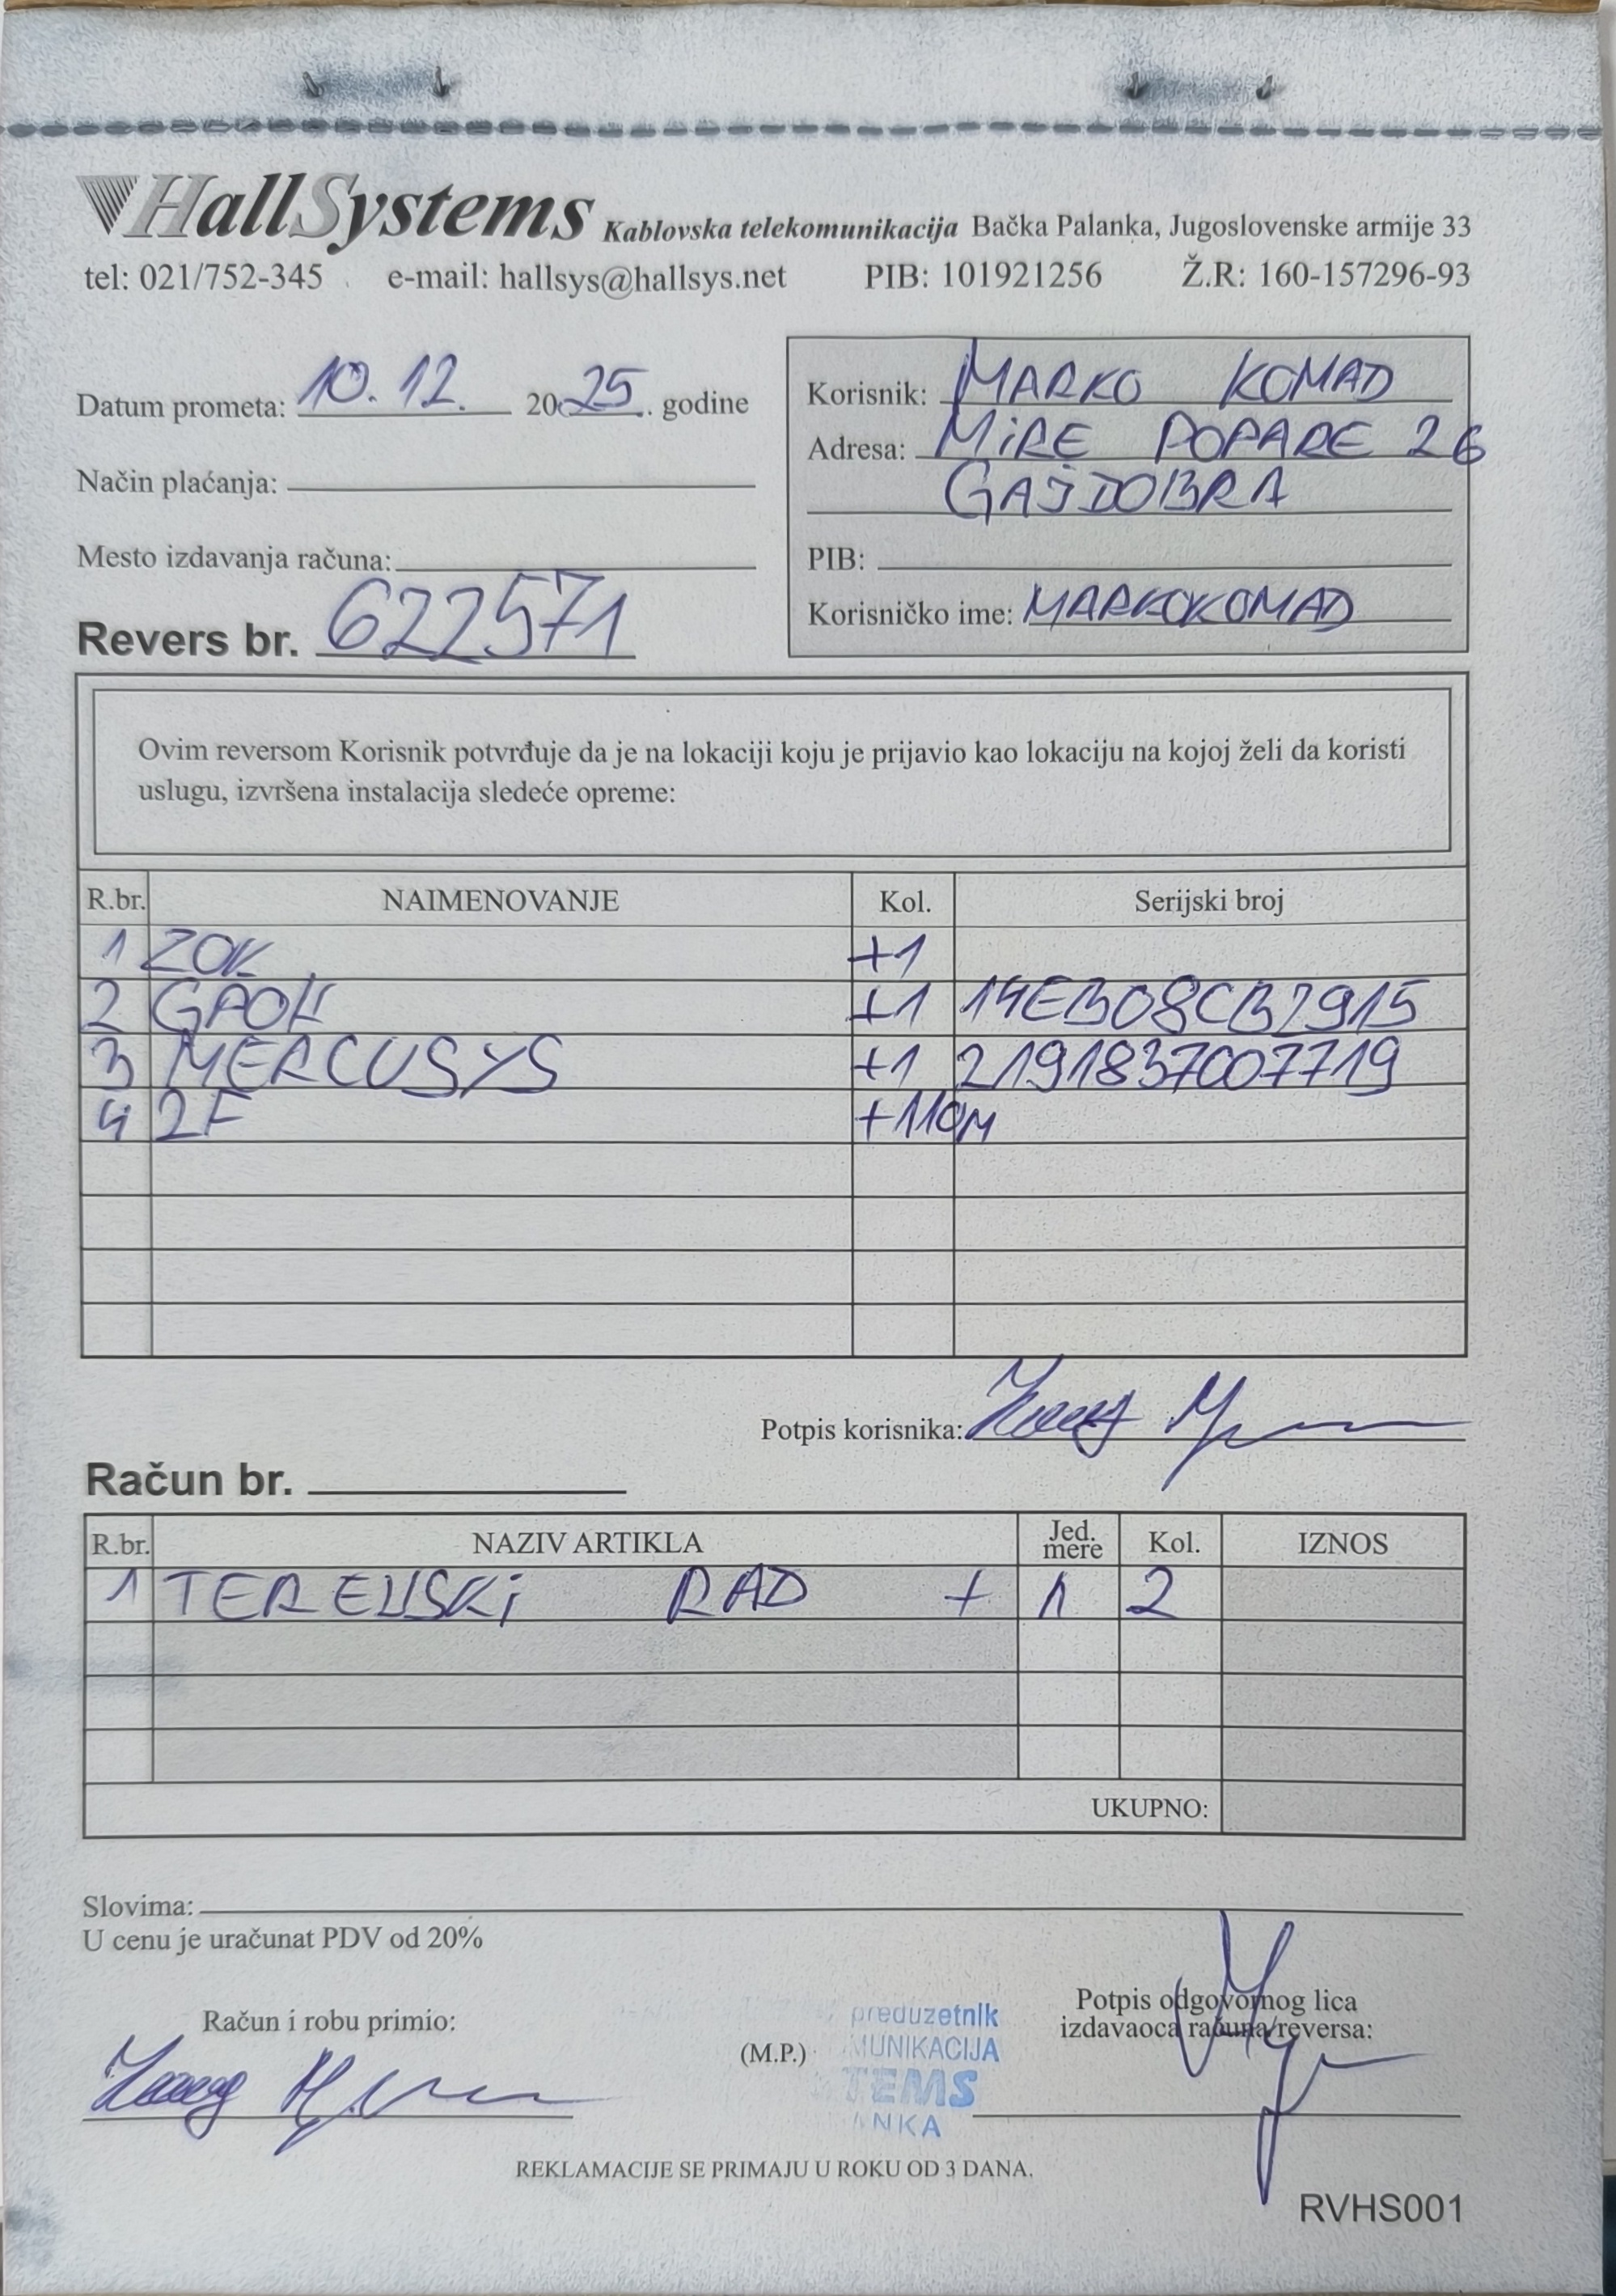 HallSystems Kablovska telekomunikacija Bačka Palanka, Jugoslovenske armije 33
tel: 021/752-345 e-mail: hallsys@hallsys.net PIB: 101921256 Ž.R: 160-157296-93
Datum prometa: 10.12. 2025. godine
Način plaćanja:
Mesto izdavanja računa:
Revers br. 622571
Korisnik: MARKO KOMAD
Adresa: MiRE POPARE 26
GAJDOBRA
PIB:
Korisničko ime: MARKOKOMAD
Ovim reversom Korisnik potvrđuje da je na lokaciji koju je prijavio kao lokaciju na kojoj želi da koristi
uslugu, izvršena instalacija sledeće opreme:
R.br. NAIMENOVANJE Kol. Serijski broj
1 ZOK +1
2 GPON +1 14EB08CB7915
3 MERCUSYS +1 2191837007719
4 2F +110M
Potpis korisnika:
Račun br.
R.br. NAZIV ARTIKLA Jed. mere Kol. IZNOS
1 TERENSKi RAD + 1 2
UKUPNO:
Slovima:
U cenu je uračunat PDV od 20%
Račun i robu primio:
(M.P.)
preduzetnik
MUNIKACIJA
TEMS
ANKA
Potpis odgovornog lica
izdavaoca računa/reversa:
REKLAMACIJE SE PRIMAJU U ROKU OD 3 DANA.
RVHS001